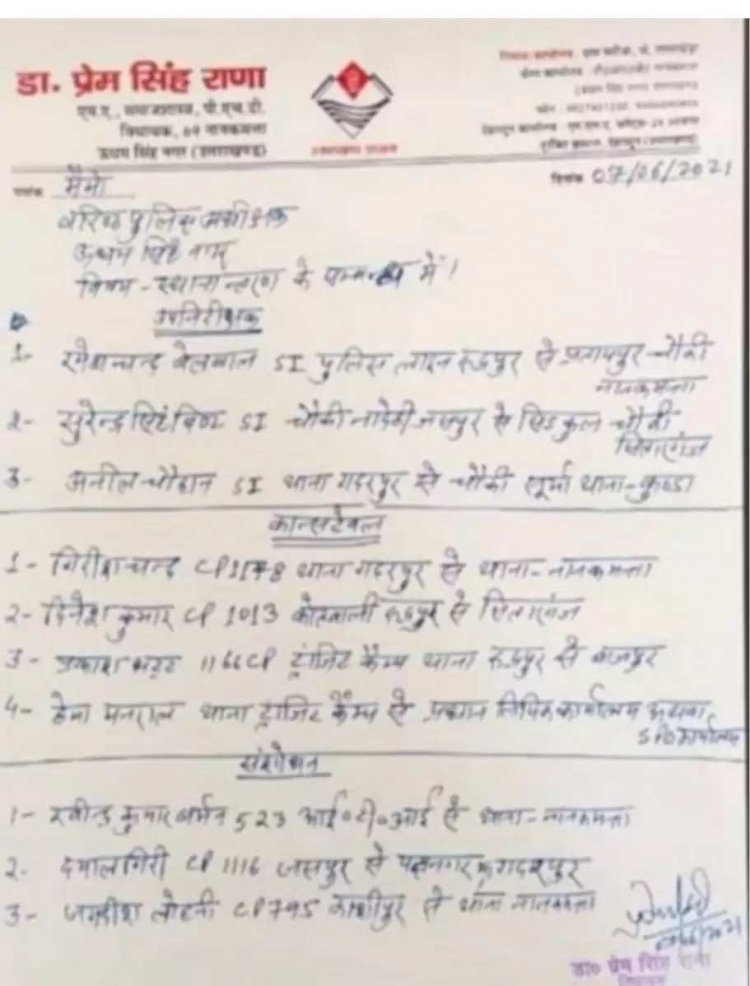 डा. प्रेम सिंह राणा
एम.ए., समाजशास्त्र, पी.एच.डी.
विधायक, 69 नानकमत्ता
ऊधम सिंह नगर (उत्तराखण्ड)
उत्तराखण्ड शासन
दिनांक 07/06/2021
मैमो
वरिष्ठ पुलिस अधीक्षक
ऊधम सिंह नगर
विषय - स्थानान्तरण के सम्बन्ध में।
उपनिरीक्षक
1- रमेशचन्द्र बेलवाल SI पुलिस लाइन रुद्रपुर से प्रतापपुर चौकी
नानकमत्ता
2- सुरेन्द्र सिंह बिष्ट SI चौकी नादेही जसपुर से सिडकुल चौकी
सितारगंज
3- अनील चौहान SI थाना गदरपुर से चौकी सूर्या थाना-कुण्डा
कान्सटेबल
1- गिरीश चन्द्र CP थाना गदरपुर से थाना-नानकमत्ता
2- दिनेश कुमार CP 1013 कोतवाली रुद्रपुर से सितारगंज
3- प्रकाश भट्ट 1166 CP ट्रांजिट कैम्प थाना रुद्रपुर से बाजपुर
4- हेमा मनराल थाना ट्रांजिट कैम्प से प्रधान लिपिक कार्यालय अथवा
SPO कार्यालय
संशोधन
1- रवीन्द्र कुमार बर्मन 523 आई०टी०आई से थाना-नानकमत्ता
2. दयालगिरी CP 1116 जसपुर से पन्तनगर गदरपुर
3- जगदीश लोहनी CP 795 काशीपुर से थाना नानकमत्ता
डा० प्रेम सिंह राणा
विधायक